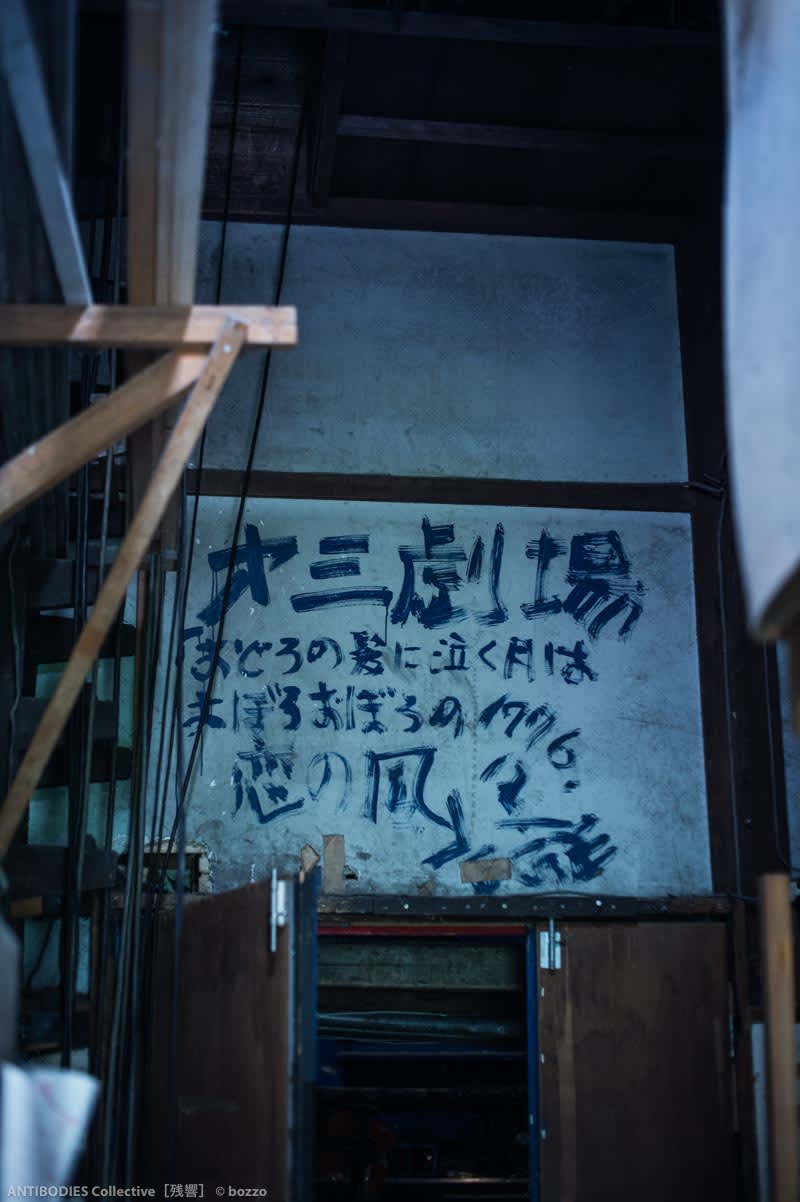 才三劇場
「おどろの髪に泣く月は
おぼろおぼろの
恋の風
1976.
ANTIBODIES Collective［残響］ © bozzo